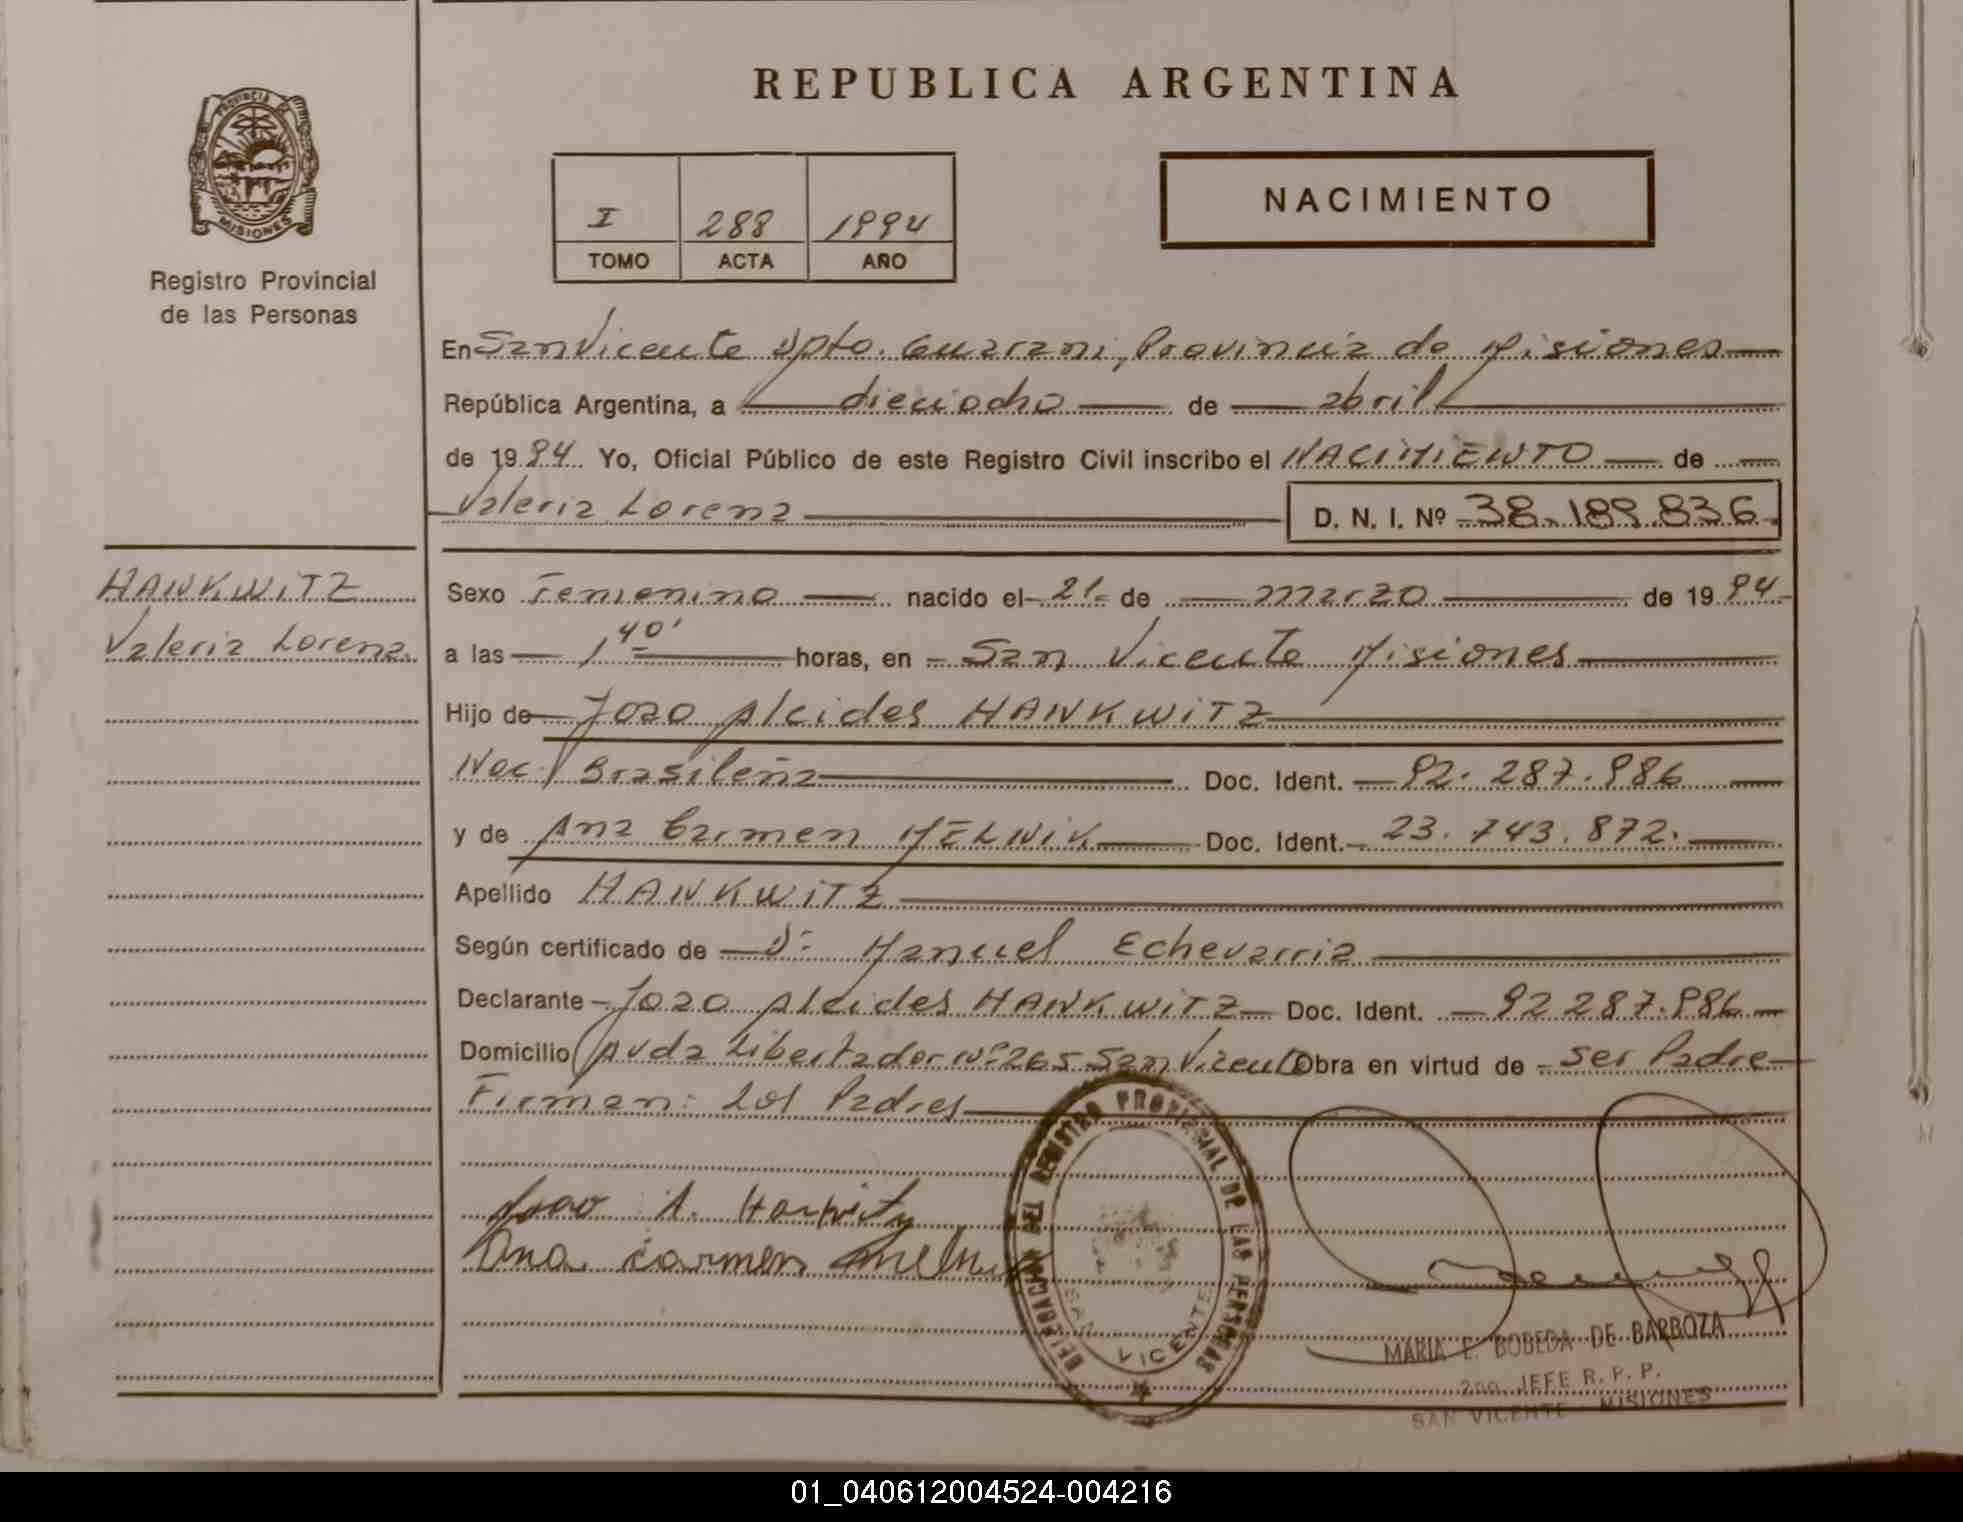 REPUBLICA ARGENTINA
PROVINCIA DE
MISIONES
Registro Provincial
de las Personas
I 288 1994
TOMO ACTA AÑO
NACIMIENTO
En San Vicente Dpto. Guarani, Provincia de Misiones
República Argentina, a dieciocho de abril
de 1994. Yo, Oficial Público de este Registro Civil inscribo el NACIMIENTO de
Valeria Lorena D. N. I. Nº 38.189.836
HANKWITZ
Valeria Lorena.
Sexo Femenino nacido el 21 de marzo de 1994
a las 1 40' horas, en San Vicente Misiones
Hijo de Joao Alcides HANKWITZ
Nac. Brasileña Doc. Ident. 92.287.986
y de Ana Carmen MELNIK Doc. Ident. 23.743.872.
Apellido HANKWITZ
Según certificado de Dr Manuel Echevarria
Declarante Joao Alcides HANKWITZ Doc. Ident. 92 287.986
Domicilio Avda Libertador Nº 265 San Vicente Obra en virtud de ser Padre
Firman: Los Padres
Joao A.
Ana Carmen Melnik
DELEGACION DEL REGISTRO PROVINCIAL DE LAS PERSONAS
SAN VICENTE
MARIA E. BOBEDA DE BARBOZA
2do. JEFE R. P. P.
SAN VICENTE MISIONES
01_040612004524-004216